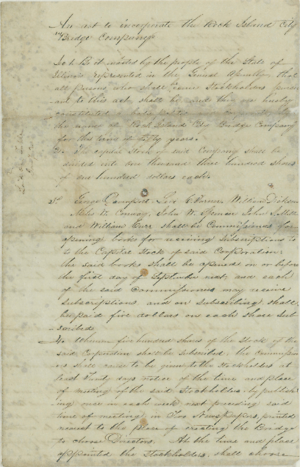 An act to incorporate the Rock Island City
Bridge Company
Sec 1. Be it enacted by the people of the State of
Illinois represented in the General Assembly that
all persons who shall become Stockholders pursu-
ant to this act, shall be and they are hereby
a body
the name of "Rock Island City Bridge Company
for the term of fifty years.
The Capital Stock of said Company shall be
divided into one thousand three hundred shares
of one hundred dollars each.
3d George Davenport, Levi Turner, William Dickson
Miles W. Conway, John W. Spencer John
and William shall be Commissioners for
opening books for receiving Subscriptions
to the Capital Stock of said Corporation
the said books shall be opened on or before
the first day of September next and each
of the said Commissioners may receive
Subscriptions and on Subscribing shall
be paid five dollars on each share sub-
scribed.
Whenever five hundred shares of the Stock of the
said Corporation shall be subscribed, the Commission-
ers shall cause to be given to the Stockholders at
least forty days notice of the time and place
of meeting of the said Stockholders by publish-
ing once in each week next preceding said
time of meeting in Two Newspapers printed
nearest to the place of erecting the Bridge
to choose Directors. At the time and place
appointed the Stockholders shall choose